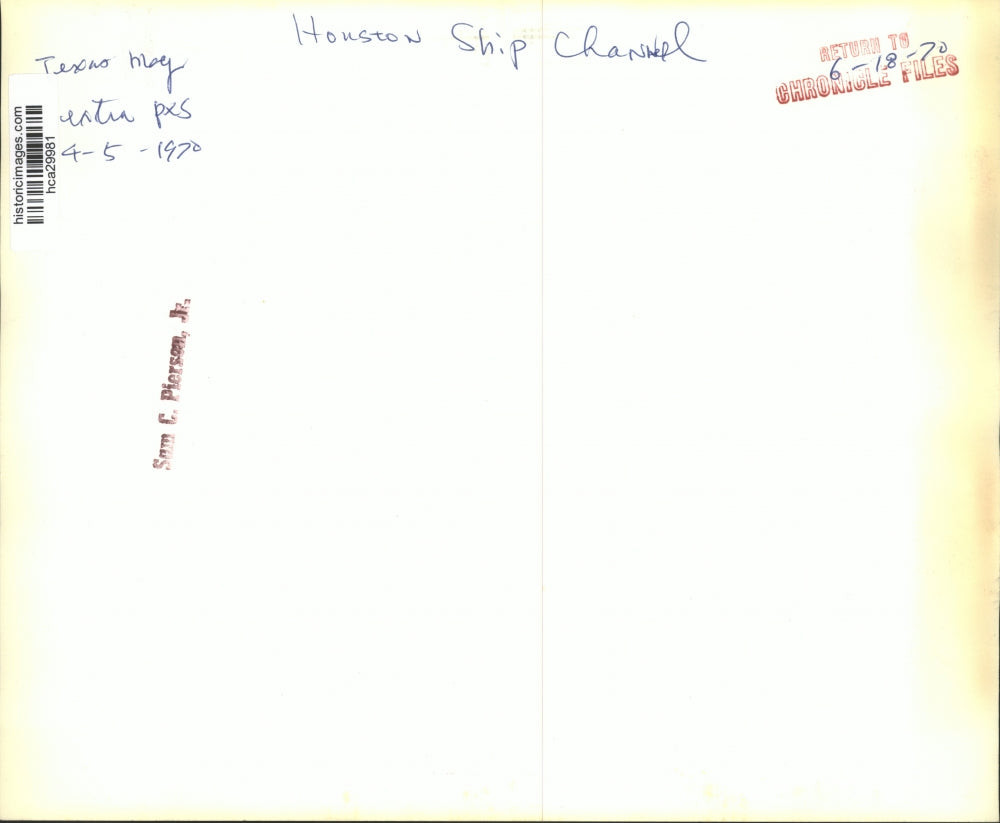 Houston Ship Channel
Texas Mag
extra pxs
4-5-1970
RETURN TO
CHRONICLE FILES
6-18-70
historicimages.com
hca29981
Sam C. Pierson, Jr.